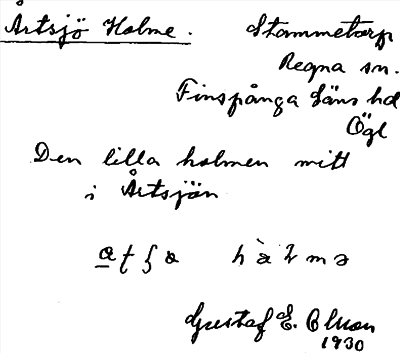 Årtsjö Holme.
Stammetorp
Regna sn.
Finspånga läns hd
Ögl
Den lilla holmen mitt
i Årtsjön
Gustaf E. Olson
1930